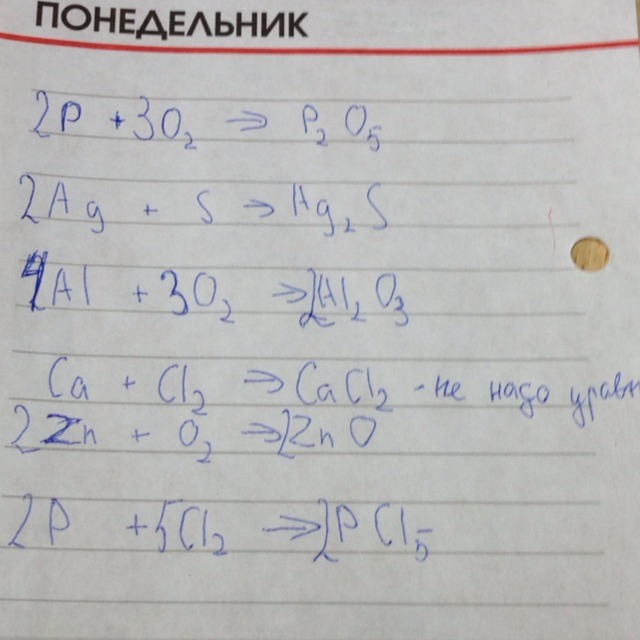 ПОНЕДЕЛЬНИК
2P + 3O₂ ⇒ P₂O₅
2Ag + S ⇒ Ag₂S
4Al + 3O₂ ⇒ 2Al₂O₃
Ca + Cl₂ ⇒ CaCl₂ - не надо уравн
2Zn + O₂ ⇒ 2ZnO
2P + 5Cl₂ ⇒ 2PCl₅